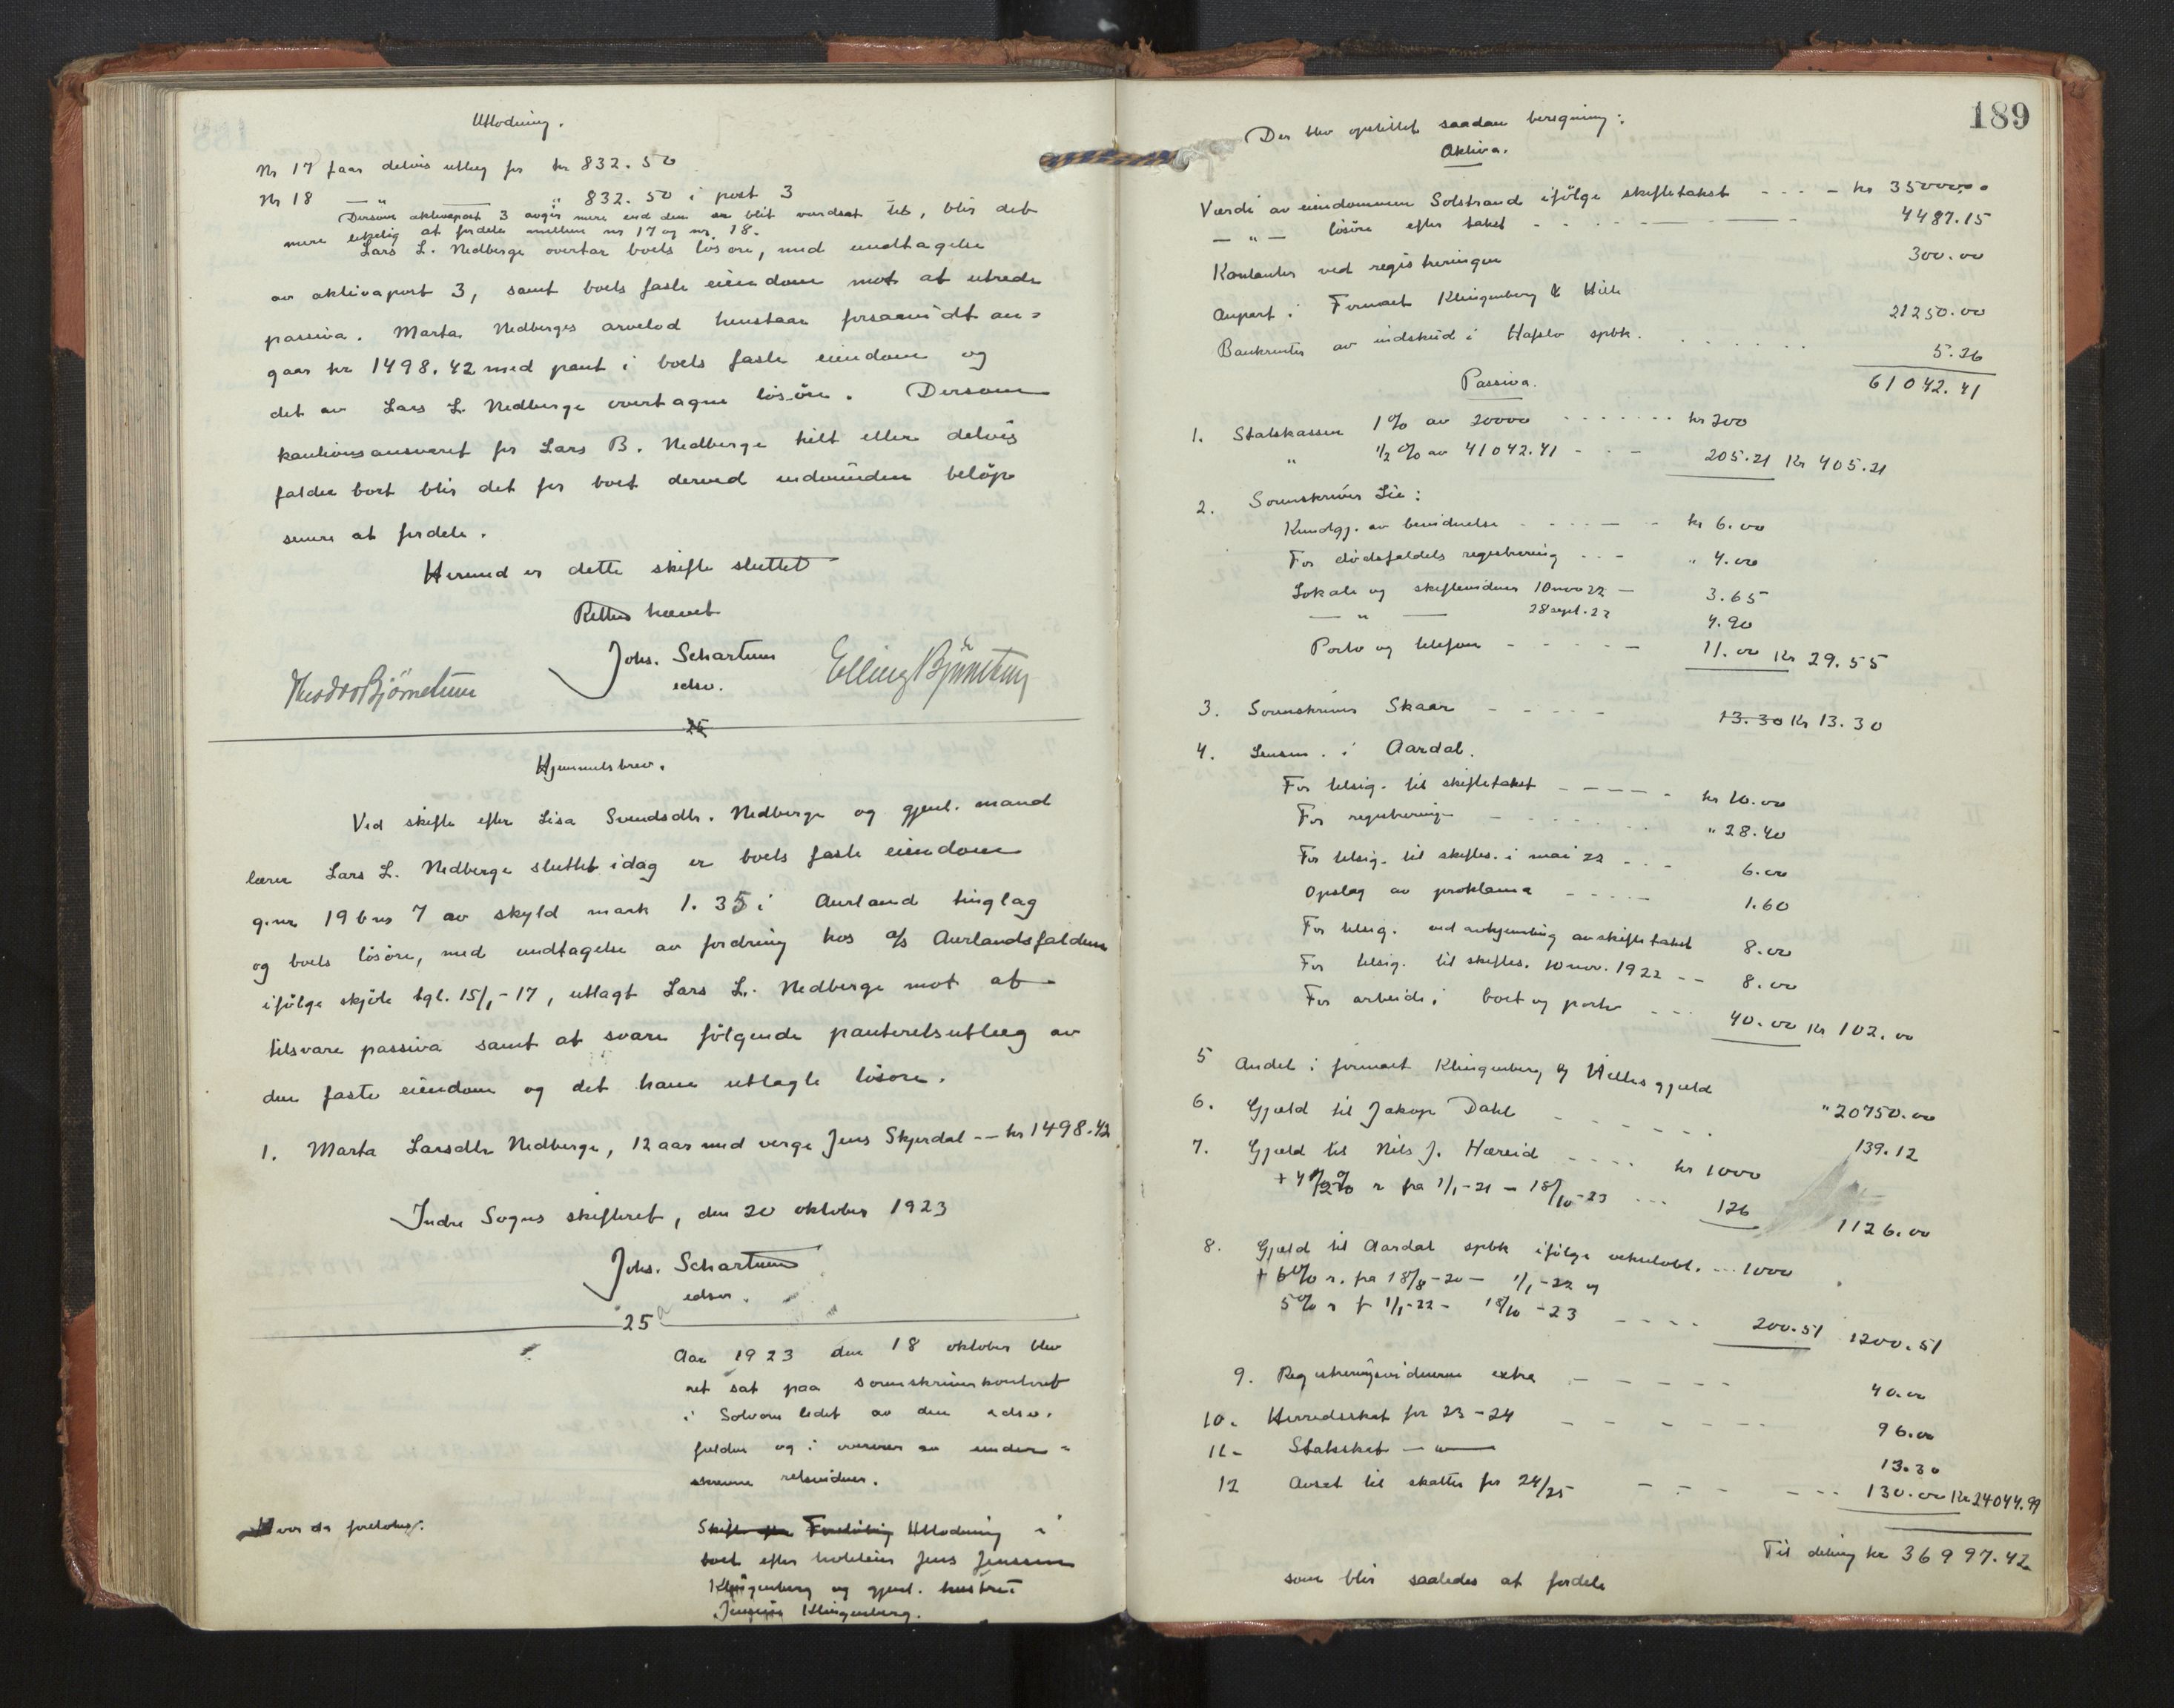 Utlodning.
Nr 17 faar delvis utlæg for kr 832.50
Nr 18 — " — " 832.50 i post 3
Dersom aktivapost 3 avgir mere end den er blit vurdsat til, blir det
mere likelig at fordele mellem nr 17 og nr. 18.
Lars L. Nedberge overtar boets løsøre, med undtagelse
av aktivapost 3, samt boets faste eiendom mot at utrede
passiva. Marta Nedberges arvelod henstaar forsaavidt an=
gaar kr 1498.42 med pant i boets faste eiendom og
det av Lars L. Nedberge overtagne løsøre. Dersom
kautionsansvaret for Lars B. Nedberge helt eller delvis
falder bort blir det for boet derved indvundne beløp
senere at fordele.
Hermed er dette skifte sluttet
Retten hævet
Johs. Schartum
edsv.
Theodor Bjørnetun
Elling Bjørnetun
25
Hjemmelsbrev.
Ved skifte efter Lisa Svendsdtr. Nedberge og gjenl. mand
lærer Lars L. Nedberge sluttet idag er boets faste eiendom
g.nr 19 b nr 7 av skyld mark 1.35 i Aurland tinglag
og boets løsøre, med undtagelse av fordring hos a/s Aurlandsfaldene
ifølge skjøte tgl. 15/1-17, utlagt Lars L. Nedberge mot at
tilsvare passiva samt at svare følgende panteretsutlæg av
den faste eiendom og det ham utlagte løsøre.
1. Marta Larsdtr Nedberge, 12 aar med verge Jens Skjerdal -- kr 1498.42
Indre Sogns skifteret, den 20 oktober 1923
Johs. Schartum
edsv.
25 a
Aar 1923 den 18 oktober blev
ret sat paa sorenskriverkontoret
i Solvorn ledet av den edsv.
fuldm og i overvær av under=
skrevne retsvidner.
Hvor da foretokes:
Skifte efter Foreløbig Utlodning i
boet efter hoteleier Jens Jenssen
Klingenberg og gjenl. hustru
Klingenberg.
189
Der blev opstillet saadan beregning:
Aktiva.
Værdi av eiendommen Solstrand ifølge skiftetakst - - - - kr 35000.00
— " — løsøre efter takst - - - 4487.15
Kontanter ved registreringen 300.00
Anpart i Firmaet Klingenberg & Hille 21250.00
Bankrenter av indskud i Hafslo spbk. . . . . . . 5.26
61042.41
Passiva.
1. Statskassen 1% av 20000 - - - - - - kr 200
" 1/2 % av 41042.41 - - - 205.21 Kr 405.21
2. Sorenskriver Lie:
Kundgj. av bevidnelse - - - - - kr 6.00
For dødsfaldets registrering - - - " 4.00
Lokale og skiftevidner 10 nov 22 — 3.65
— " — 28 sept. 22 4.90
Porto og telefon - - - - - 11.00 Kr 29.55
3. Sorenskriver Skaar - - - - - 13.30 Kr 13.30
4. Lensm. i Aardal.
For tilsig. til skiftetakst - - - - - kr 10.00
For registrering - - - - - " 28.40
For tilsig. til skiftes. i mai 22 - - - 6.00
Opslag av proklama - - - - - 1.60
For tilsig. ved avhjemling av skiftetakst 8.00
For tilsig. til skiftes. 10 nov. 1922 -- 8.00
For arbeide i boet og porto - - - 40.00 Kr 102.00
5 Andel i firmaet Klingenberg & Hilles gjæld " 20750.00
6. Gjæld til Jakop Dahl - - - - - - 139.12
7. Gjæld til Nils J. Hæreid - - - - kr 1000
+ 4 1/2 % r fra 1/1-21 - 18/10-23 - - - 126 1126.00
8. Gjæld til Aardal spbk ifølge vekselobl. --- 1000
+ 6 % r. fra 18/8-20 - 1/1-22 og
5% r f 1/1-22 - 18/10-23 - - - - 200.51 1200.51
9. Registreringsvidnerne extra - - - - - 40.00
10. Herredsskat for 23-24 - - - - - 96.00
11- Statsskat — " — 13.30
12 Avsat til skatter for 24/25 - - - - - - 130.00 Kr 24044.99
Til deling kr 36997.42
som blir saaledes at fordele